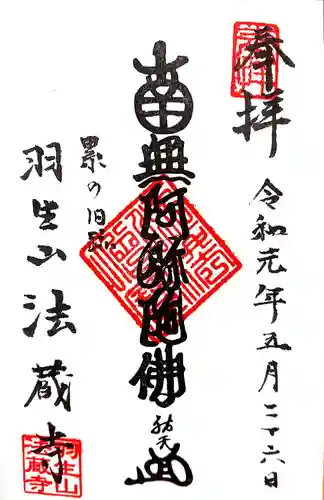 奉拝
令和元年五月二十六日
南無阿弥陀佛
祐天
累の旧跡
羽生山法蔵寺
羽生山
法蔵寺